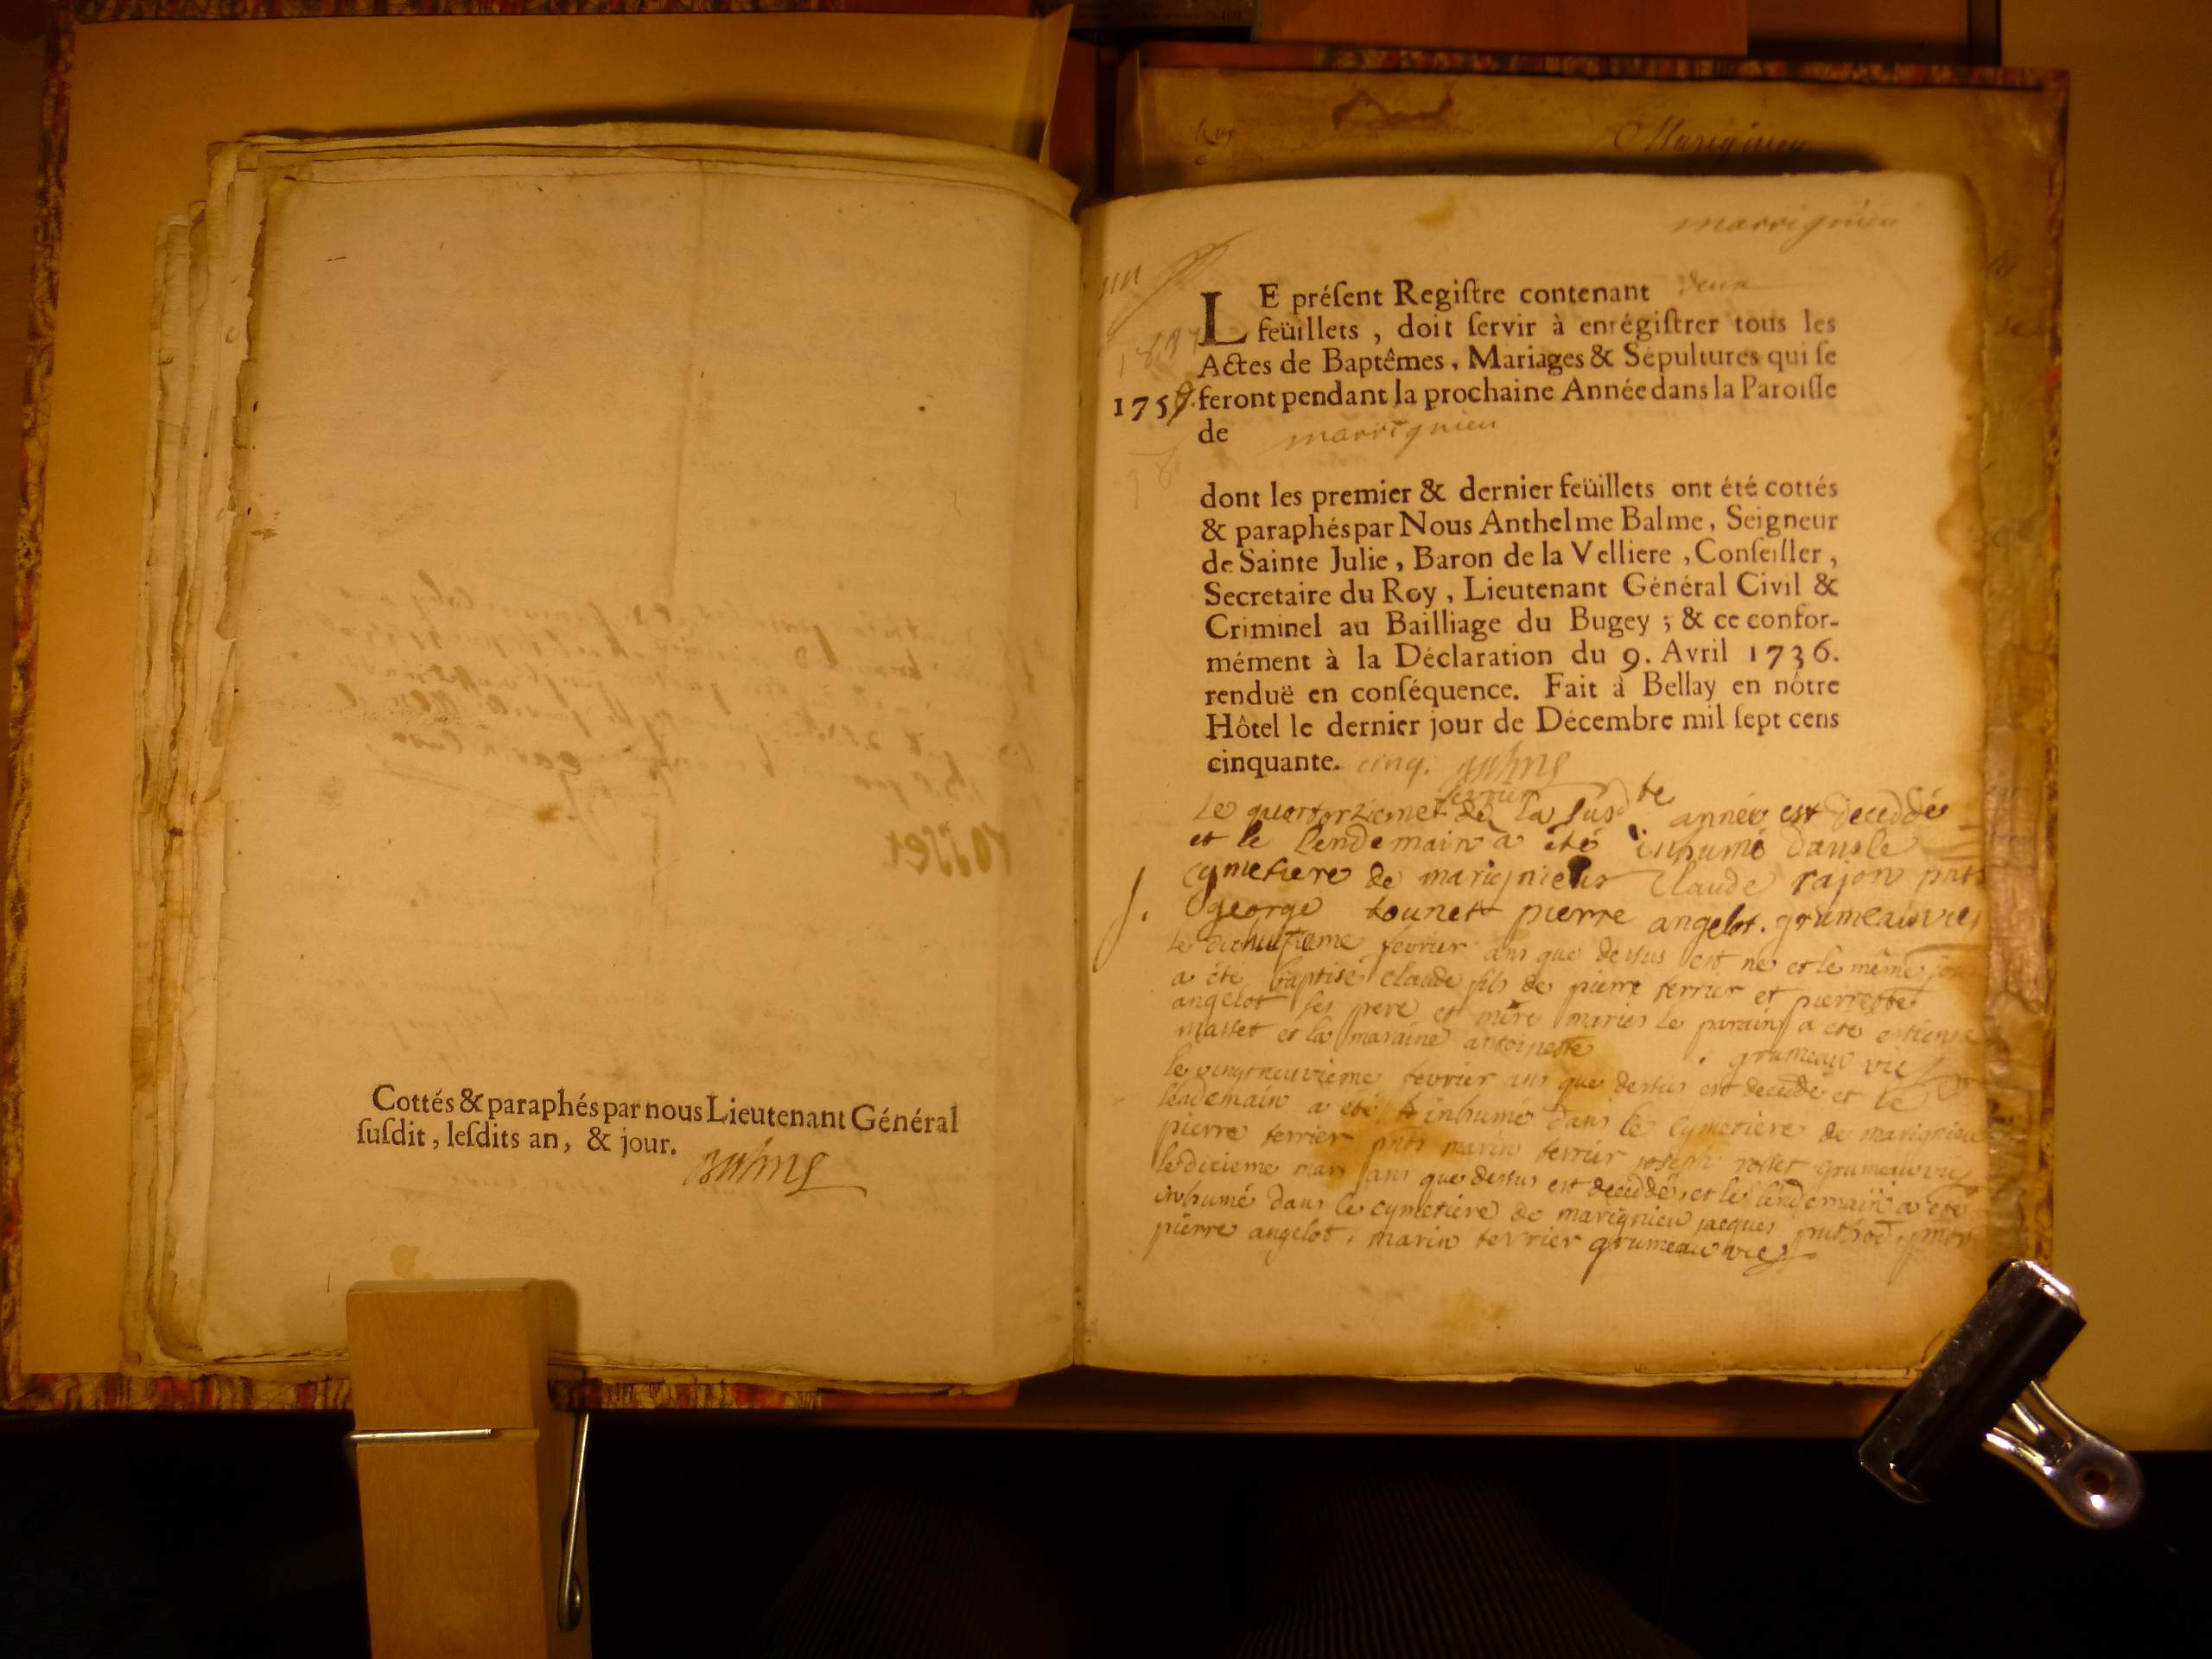 Cottés & paraphés par nous Lieutenant Général
susdit, lesdits an, & jour.
Balme
Marignieu
marrignieu
un
LE présent Registre contenant deux
feüillets, doit servir à enrégistrer tous les
Actes de Baptêmes, Mariages & Sépultures qui se
175 feront pendant la prochaine Année dans la Paroisse
de marrignieu
dont les premier & dernier feüillets ont été cottés
& paraphés par Nous Anthelme Balme, Seigneur
de Sainte Julie, Baron de la Velliere, Conseiller,
Secretaire du Roy, Lieutenant Général Civil &
Criminel au Bailliage du Bugey; & ce confor-
mément à la Déclaration du 9. Avril 1736.
renduë en conséquence. Fait à Bellay en nôtre
Hôtel le dernier jour de Décembre mil sept cens
cinquante. cinq. Balme
fevrier
le quatorzieme de la susdte année est deceddé
et le lendemain a été inhumé dans le
cymetiere de marignieu Claude rajon pnts
george tounet pierre angelot. grumeau vic
le dixhuitieme février ans que dessus est né et le même jour
a été baptisé claude fils de pierre terrier et pierrette
angelot ses pere et mere mariés le parain a été estienne
masset et la maraine antoinette grumeau vic
le vingtneuvieme fevrier ans que dessus est deceddé et le
lendemain a été inhumé dans le cymetiere de marignieu
pierre terrier pnts marin terrier joseph rosset grumeau vic
le dixieme mars ans que dessus est deceddé, et le lendemain a été
inhumé dans le cymetiere de marignieu jacques puthod, pnts
pierre angelot. marin terrier grumeau vic